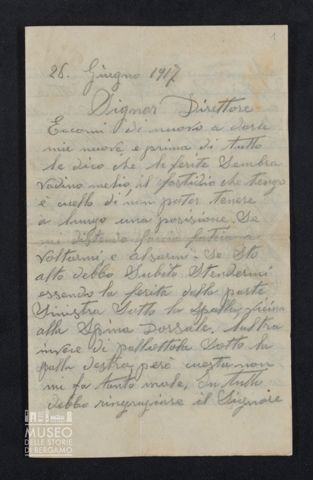 1
26. Giugno 1917
Signor Direttore
Eccomi di nuovo a darle
mie nuove e prima di tutto
le dico che le ferite sembra
vadino meglio, il fastidio che tengo
è cuello di non poter tenere
a lungo una posizione. Se
mi distendo faccio fatica a
voltarmi, e alzarmi. Se sto
alto debbo subito stendermi
essendo la ferita della parte
sinistra sotto la spalla, vicino
alla Spina Dorsale. L'altra
invece di pallottola sotto la
spalla destra, però cuesta non
mi fa tanto male, in tutto
debbo ringraziare il Signore
MUSEO
DELLE STORIE
DI BERGAMO